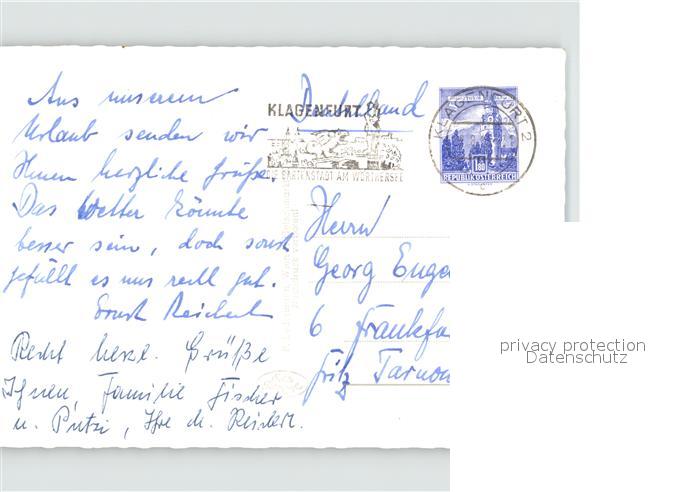 Aus unserem
Urlaub senden wir
Ihnen herzliche Grüße.
Das Wetter könnte
besser sein, doch sonst
gefällt es uns recht gut.
Ernst Reichert
Recht herzl. Grüße
Ihnen, Familie Fischer
u. Putzi, Ihre
Deutschland
KLAGENFURT
DIE GARTENSTADT AM WÖRTHERSEE
KLAGENFURT 2
1.80
REPUBLIK ÖSTERREICH
Herrn
Georg Enge
6 Frankfu
Fritz Tarnow
privacy protection
Datenschutz